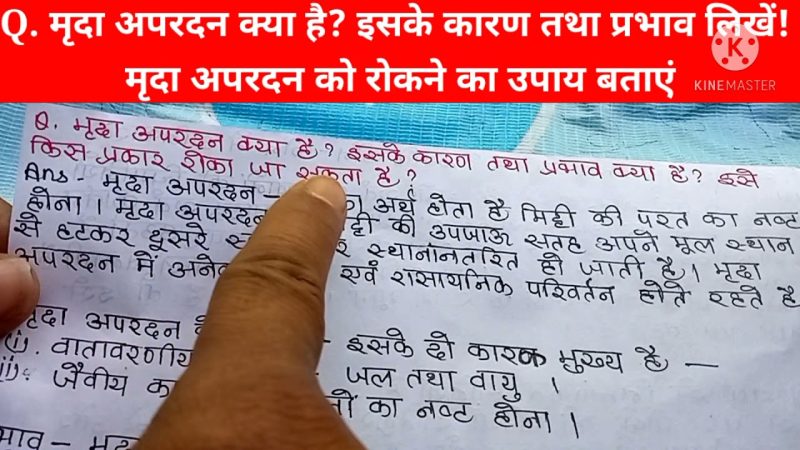 Q. मृदा अपरदन क्या है? इसके कारण तथा प्रभाव लिखें!
मृदा अपरदन को रोकने का उपाय बताएं
KINEMASTER
Q. मृदा अपरदन क्या है? इसके कारण तथा प्रभाव क्या है? इसे
किस प्रकार रोका जा सकता है?
Ans- मृदा अपरदन- अर्थ होता है मिट्टी की परत का नष्ट
होना। मृदा अपरदन की उपजाऊ सतह अपने मूल स्थान
से हटकर दूसरे स्थानांनतरित हो जाती है। मृदा
अपरदन में एवं रासायनिक परिवर्तन होते रहते है
मृदा अपरदन - इसके दो कारक मुख्य है -
(i). वातावरणीय जल तथा वायु ।
(ii). जैवीय का नष्ट होना ।